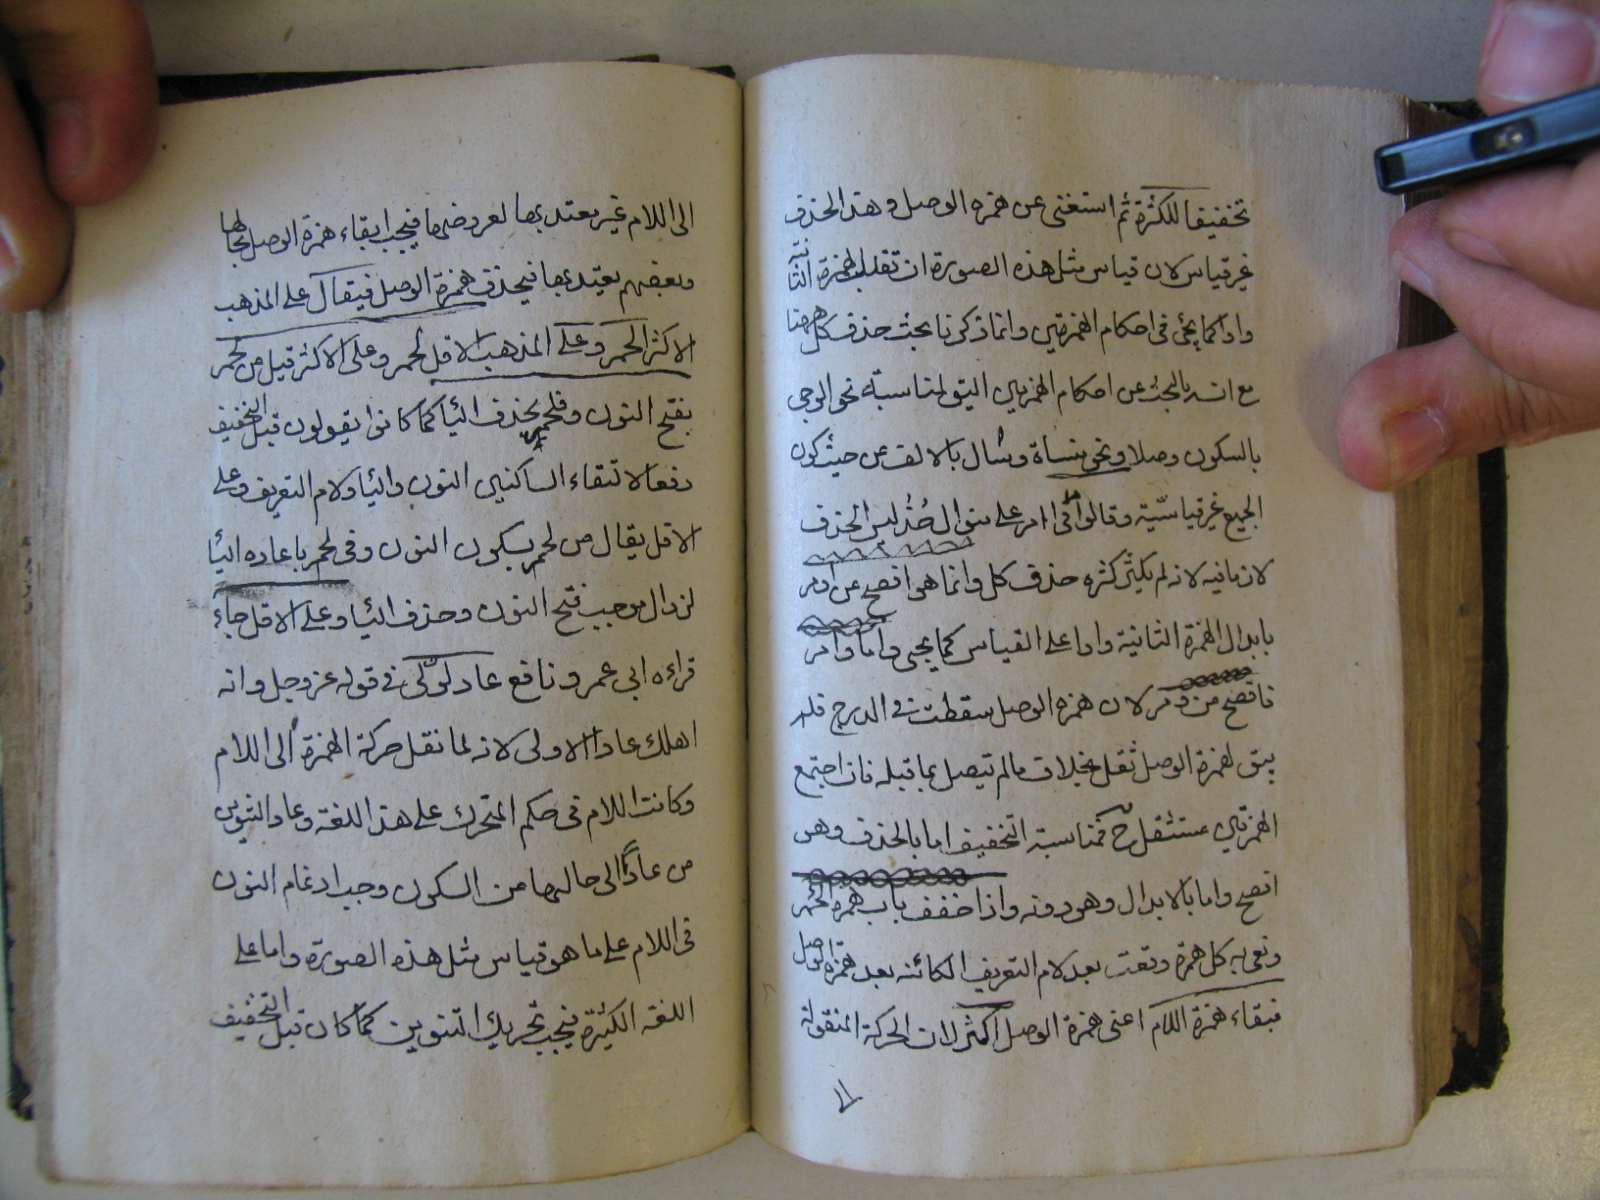 تخفيفا للكثرة ثم استغنى عن همزه الوصل وهذا الحذف
غير قياس لان قياس مثل هذه الصورة ان تقلب الهمزة الثانية
واوا كما يجئ فى احكام الهمزتين وانما ذكرنا بحث حذف كل همزتنا
مع انه بالبحث عن احكام الهمزتين اليق لمناسبته نحو الوجى
بالسكون وصلا ونحو منساة وسال بالالف عن حيث كون
الجميع غير قياسيّة وقالوا فى اامر على منوال خُذْ ليس الحذف
لازما فيه لانه لم يكثر كثره حذف كل وانما هى افصح عن اومر
بابدال الهمزة الثانية واوا على القياس كما يجى واما وامر
فافصح من ومر لان همزه الوصل سقطت فى الدرج فلم
يبق لهمزة الوصل ثقل بخلاف مالم تيصل بما قبله فان اجتمع
الهمزتين مستثقل ح فمناسبة التخفيف اما بالحذف وهو
افصح واما بالابدال وهو دونه واذا خفف باب همزه الحمر
ونعى به كل همزة وقعت بعد لام التعريف الكائنه بعد همزه الوصل
فبقاء همزة اللام اعنى همزة الوصل اكثر لان الحركة المنقولة
الى
الى اللام غير معتد بها لعروضها فيجب ابقاء همزة الوصل بحالها
وبعضهم يعتد بها فيحذف همزة الوصل فيقال على المذهب
الاكثر الحمر وعلى المذهب الاقل لحمر وعلى الاكثر قيل من لحمر
بفتح النون وفلحمر بحذف اليا كما كانوا يقولون قبل التخفيف
دفعا لالتقاء الساكنين النون واليا ولام التعريف وعلى
الاقل يقال من لحمر بسكون النون وفى لحمر باعاده اليا
لزوال موجب فتح النون وحذف اليا وعلى الاقل جاء
قراءه ابى عمرو ونافع عاد لولى فى قوله عز وجل وانه
اهلك عادا الاولى لانه لما نقل حركة الهمزة الى اللام
وكانت اللام فى حكم المتحرك على هذ اللغة وعاد التنوين
من عادًا الى حالها من السكون وجب ادغام النون
فى اللام على ما هو قياس مثل هذه الصورة واما على
اللغه الكثيرة فيجب تحريك التنوين كما كان قبل التخفيف